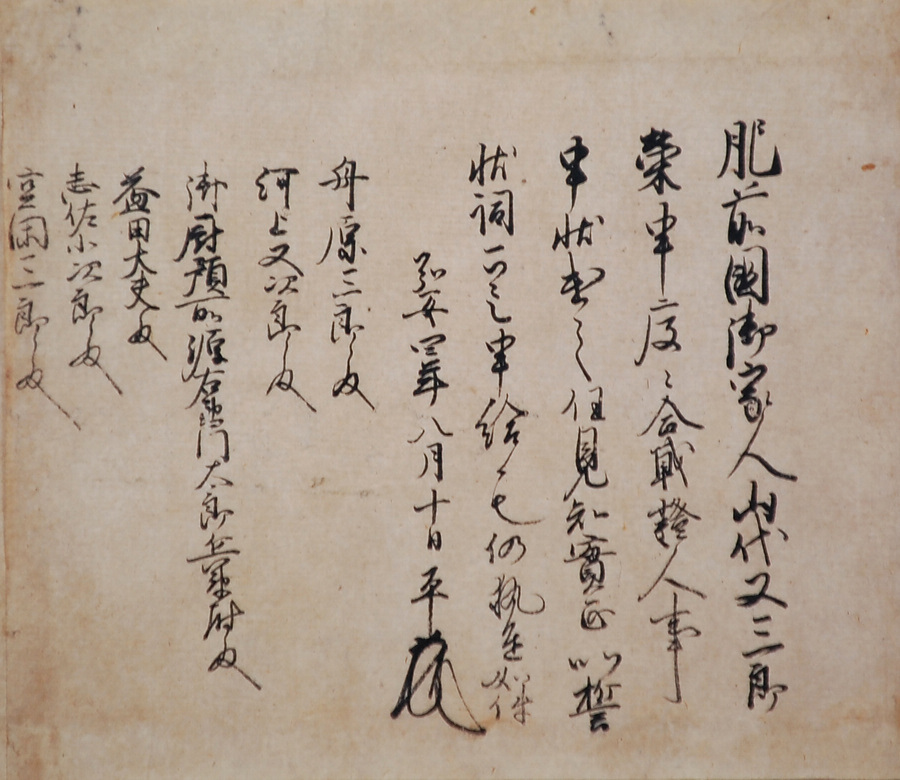 肥前國御家人山代又三郎
榮申度々合戰證人事
申状書之任見知實正以誓
状詞可令申給候也仍執達如件
弘安四年八月十日 平
舟原三郎殿
河上又次郎殿
御厨預所源右衛門太郎兵衛尉殿
益田大夫殿
志佐小次郎殿
三郎殿